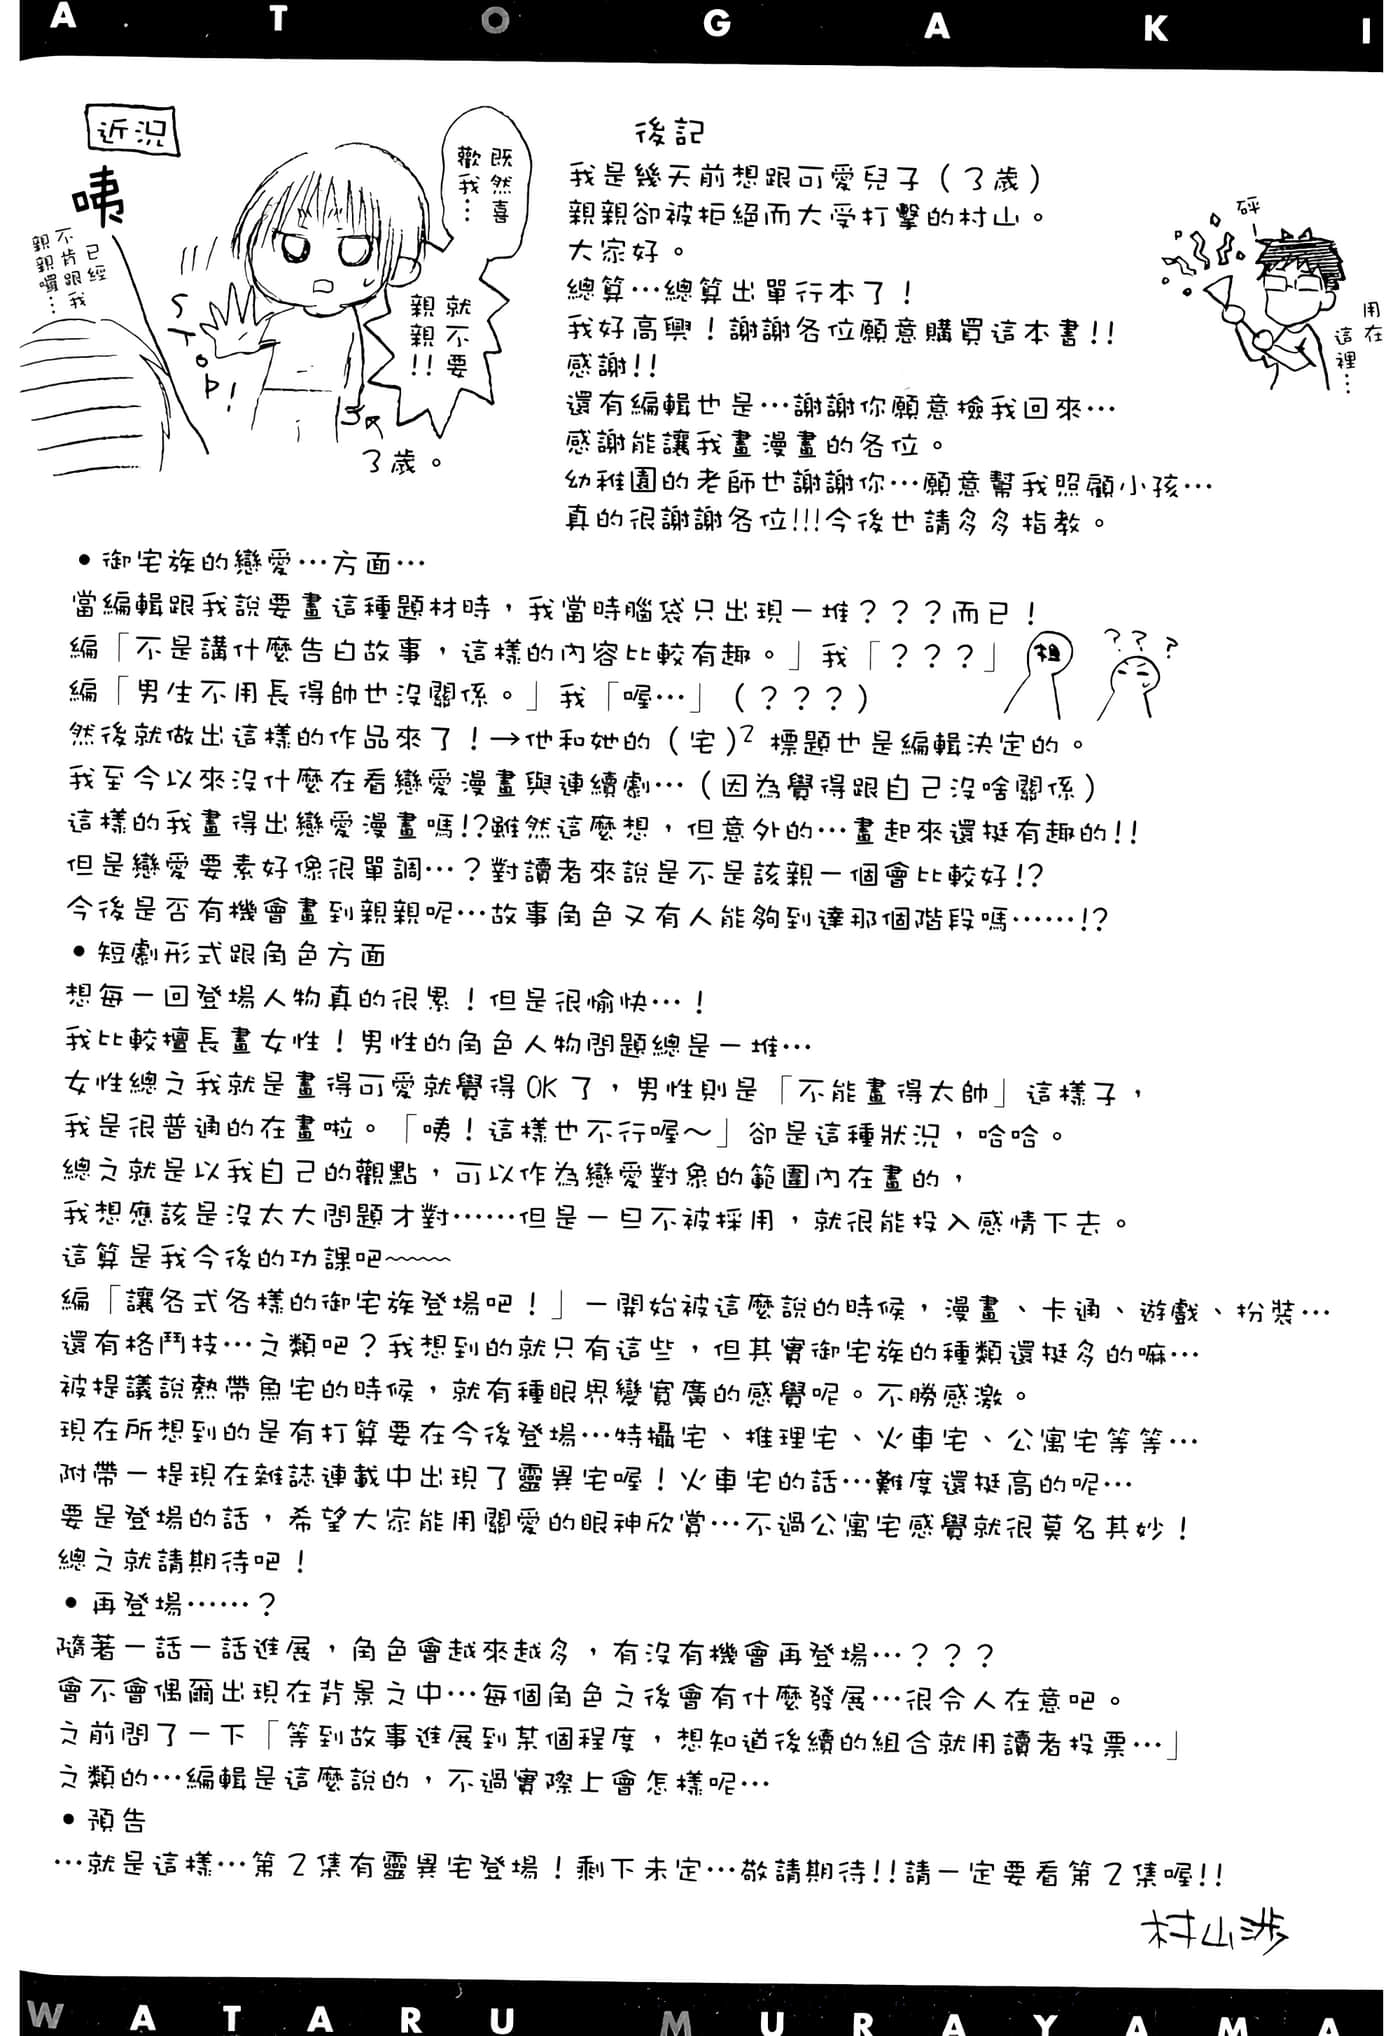 ATOGAKI
近況
咦
已經
不肯跟我
親親囉…
STOP!
既然喜
歡我…
就不要
親親!!
3歲。
後記
我是幾天前想跟可愛兒子（3歲）
親親卻被拒絕而大受打擊的村山。
大家好。
總算…總算出單行本了！
我好高興！謝謝各位願意購買這本書!!
感謝!!
還有編輯也是…謝謝你願意撿我回來…
感謝能讓我畫漫畫的各位。
幼稚園的老師也謝謝你…願意幫我照顧小孩…
真的很謝謝各位!!!今後也請多多指教。
砰！
用在
這裡…
•御宅族的戀愛…方面…
當編輯跟我說要畫這種題材時，我當時腦袋只出現一堆？？？而已！
編「不是講什麼告白故事，這樣的內容比較有趣。」我「？？？」
編「男生不用長得帥也沒關係。」我「喔…」（？？？）
？？？
然後就做出這樣的作品來了！→他和她的（宅)2 標題也是編輯決定的。
我至今以來沒什麼在看戀愛漫畫與連續劇…（因為覺得跟自己沒啥關係）
這樣的我畫得出戀愛漫畫嗎!?雖然這麼想，但意外的…畫起來還挺有趣的!!
但是戀愛要素好像很單調…？對讀者來說是不是該親一個會比較好!?
今後是否有機會畫到親親呢…故事角色又有人能夠到達那個階段嗎……!?
•短劇形式跟角色方面
想每一回登場人物真的很累！但是很愉快…！
我比較擅長畫女性！男性的角色人物問題總是一堆…
女性總之我就是畫得可愛就覺得OK了，男性則是「不能畫得太帥」這樣子，
我是很普通的在畫啦。「咦！這樣也不行喔～」卻是這種狀況，哈哈。
總之就是以我自己的觀點，可以作為戀愛對象的範圍內在畫的，
我想應該是沒太大問題才對……但是一旦不被採用，就很能投入感情下去。
這算是我今後的功課吧~~~~
編「讓各式各樣的御宅族登場吧！」一開始被這麼說的時候，漫畫、卡通、遊戲、扮裝…
還有格鬥技…之類吧？我想到的就只有這些，但其實御宅族的種類還挺多的嘛…
被提議說熱帶魚宅的時候，就有種眼界變寬廣的感覺呢。不勝感激。
現在所想到的是有打算要在今後登場…特攝宅、推理宅、火車宅、公寓宅等等…
附帶一提現在雜誌連載中出現了靈異宅喔！火車宅的話…難度還挺高的呢…
要是登場的話，希望大家能用關愛的眼神欣賞…不過公寓宅感覺就很莫名其妙！
總之就請期待吧！
•再登場……？
隨著一話一話進展，角色會越來越多，有沒有機會再登場…？？？
會不會偶爾出現在背景之中…每個角色之後會有什麼發展…很令人在意吧。
之前問了一下「等到故事進展到某個程度，想知道後續的組合就用讀者投票…」
之類的…編輯是這麼說的，不過實際上會怎樣呢…
•預告
…就是這樣…第2集有靈異宅登場！剩下未定…敬請期待!!請一定要看第2集喔!!
村山渉
WATARU MURAYAMA